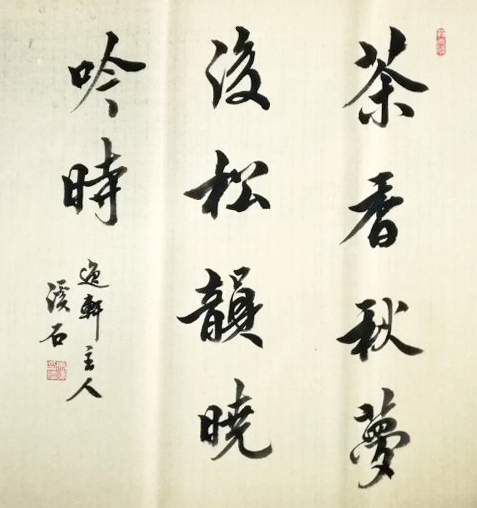 茶香秋夢
後松韻曉
吟時
逸軒主人
溪石